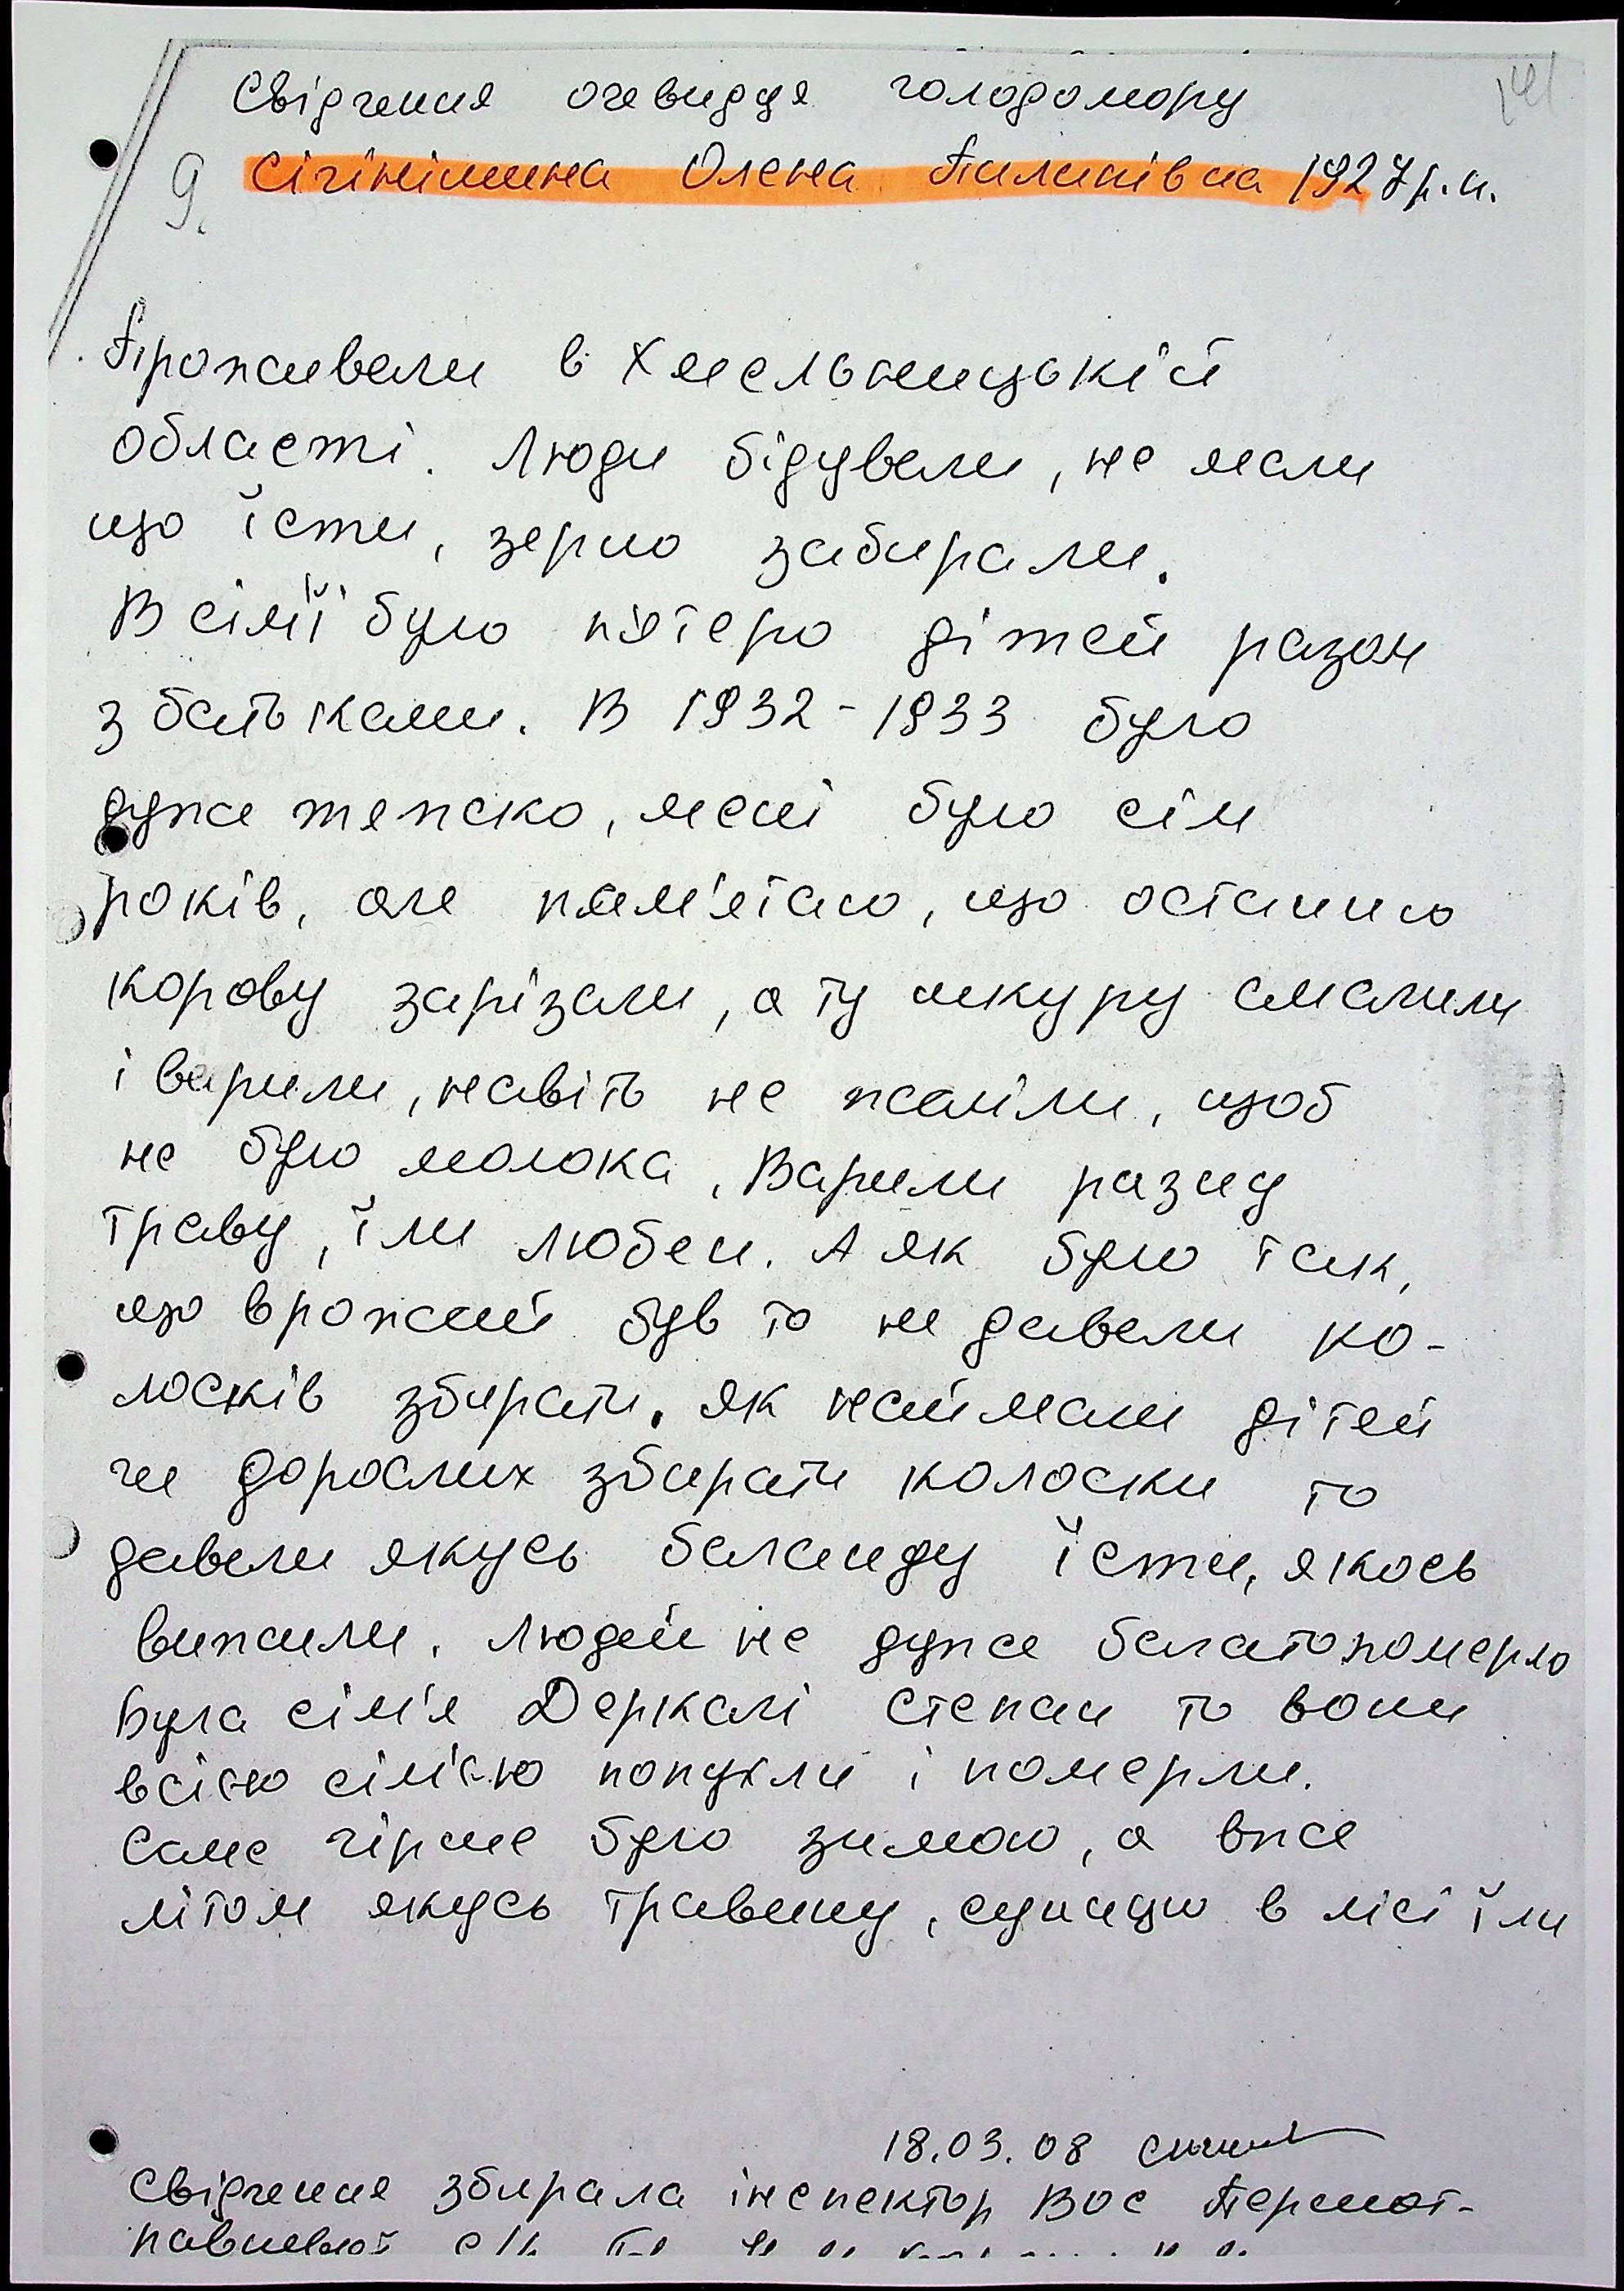 141
Свідчення очевидця голодомору
9. Сігінішина Олена Пилипівна 1927 р.н.
Проживали в Хмельницькій
області. Люди бідували, не мали
що їсти, зерно забирали.
В сім'ї було п'ятеро дітей разом
з батьками. В 1932-1933 було
дуже тяжко, мені було сім
років, але пам'ятаю, що останню
корову зарізали, а ту шкуру смалили
і варили, навіть не жаліли, щоб
не було молока, Варили разну
траву, їли любеи. А як було так,
що врожай був то не давали ко-
лосків збирати. як наймали дітей
чи дорослих збирати колоски то
давали якусь баланду їсти, якось
вижили. Людей не дуже багато померло
Була сім'я Деркалі Степан то вони
всією сім'єю попухли і померли.
Саме гірше було зимою, а вже
літом якусь травину, суницю в лісі їли
18.03.08
Свідчення збирала інспектор ВОС Першот-
равневої с/р